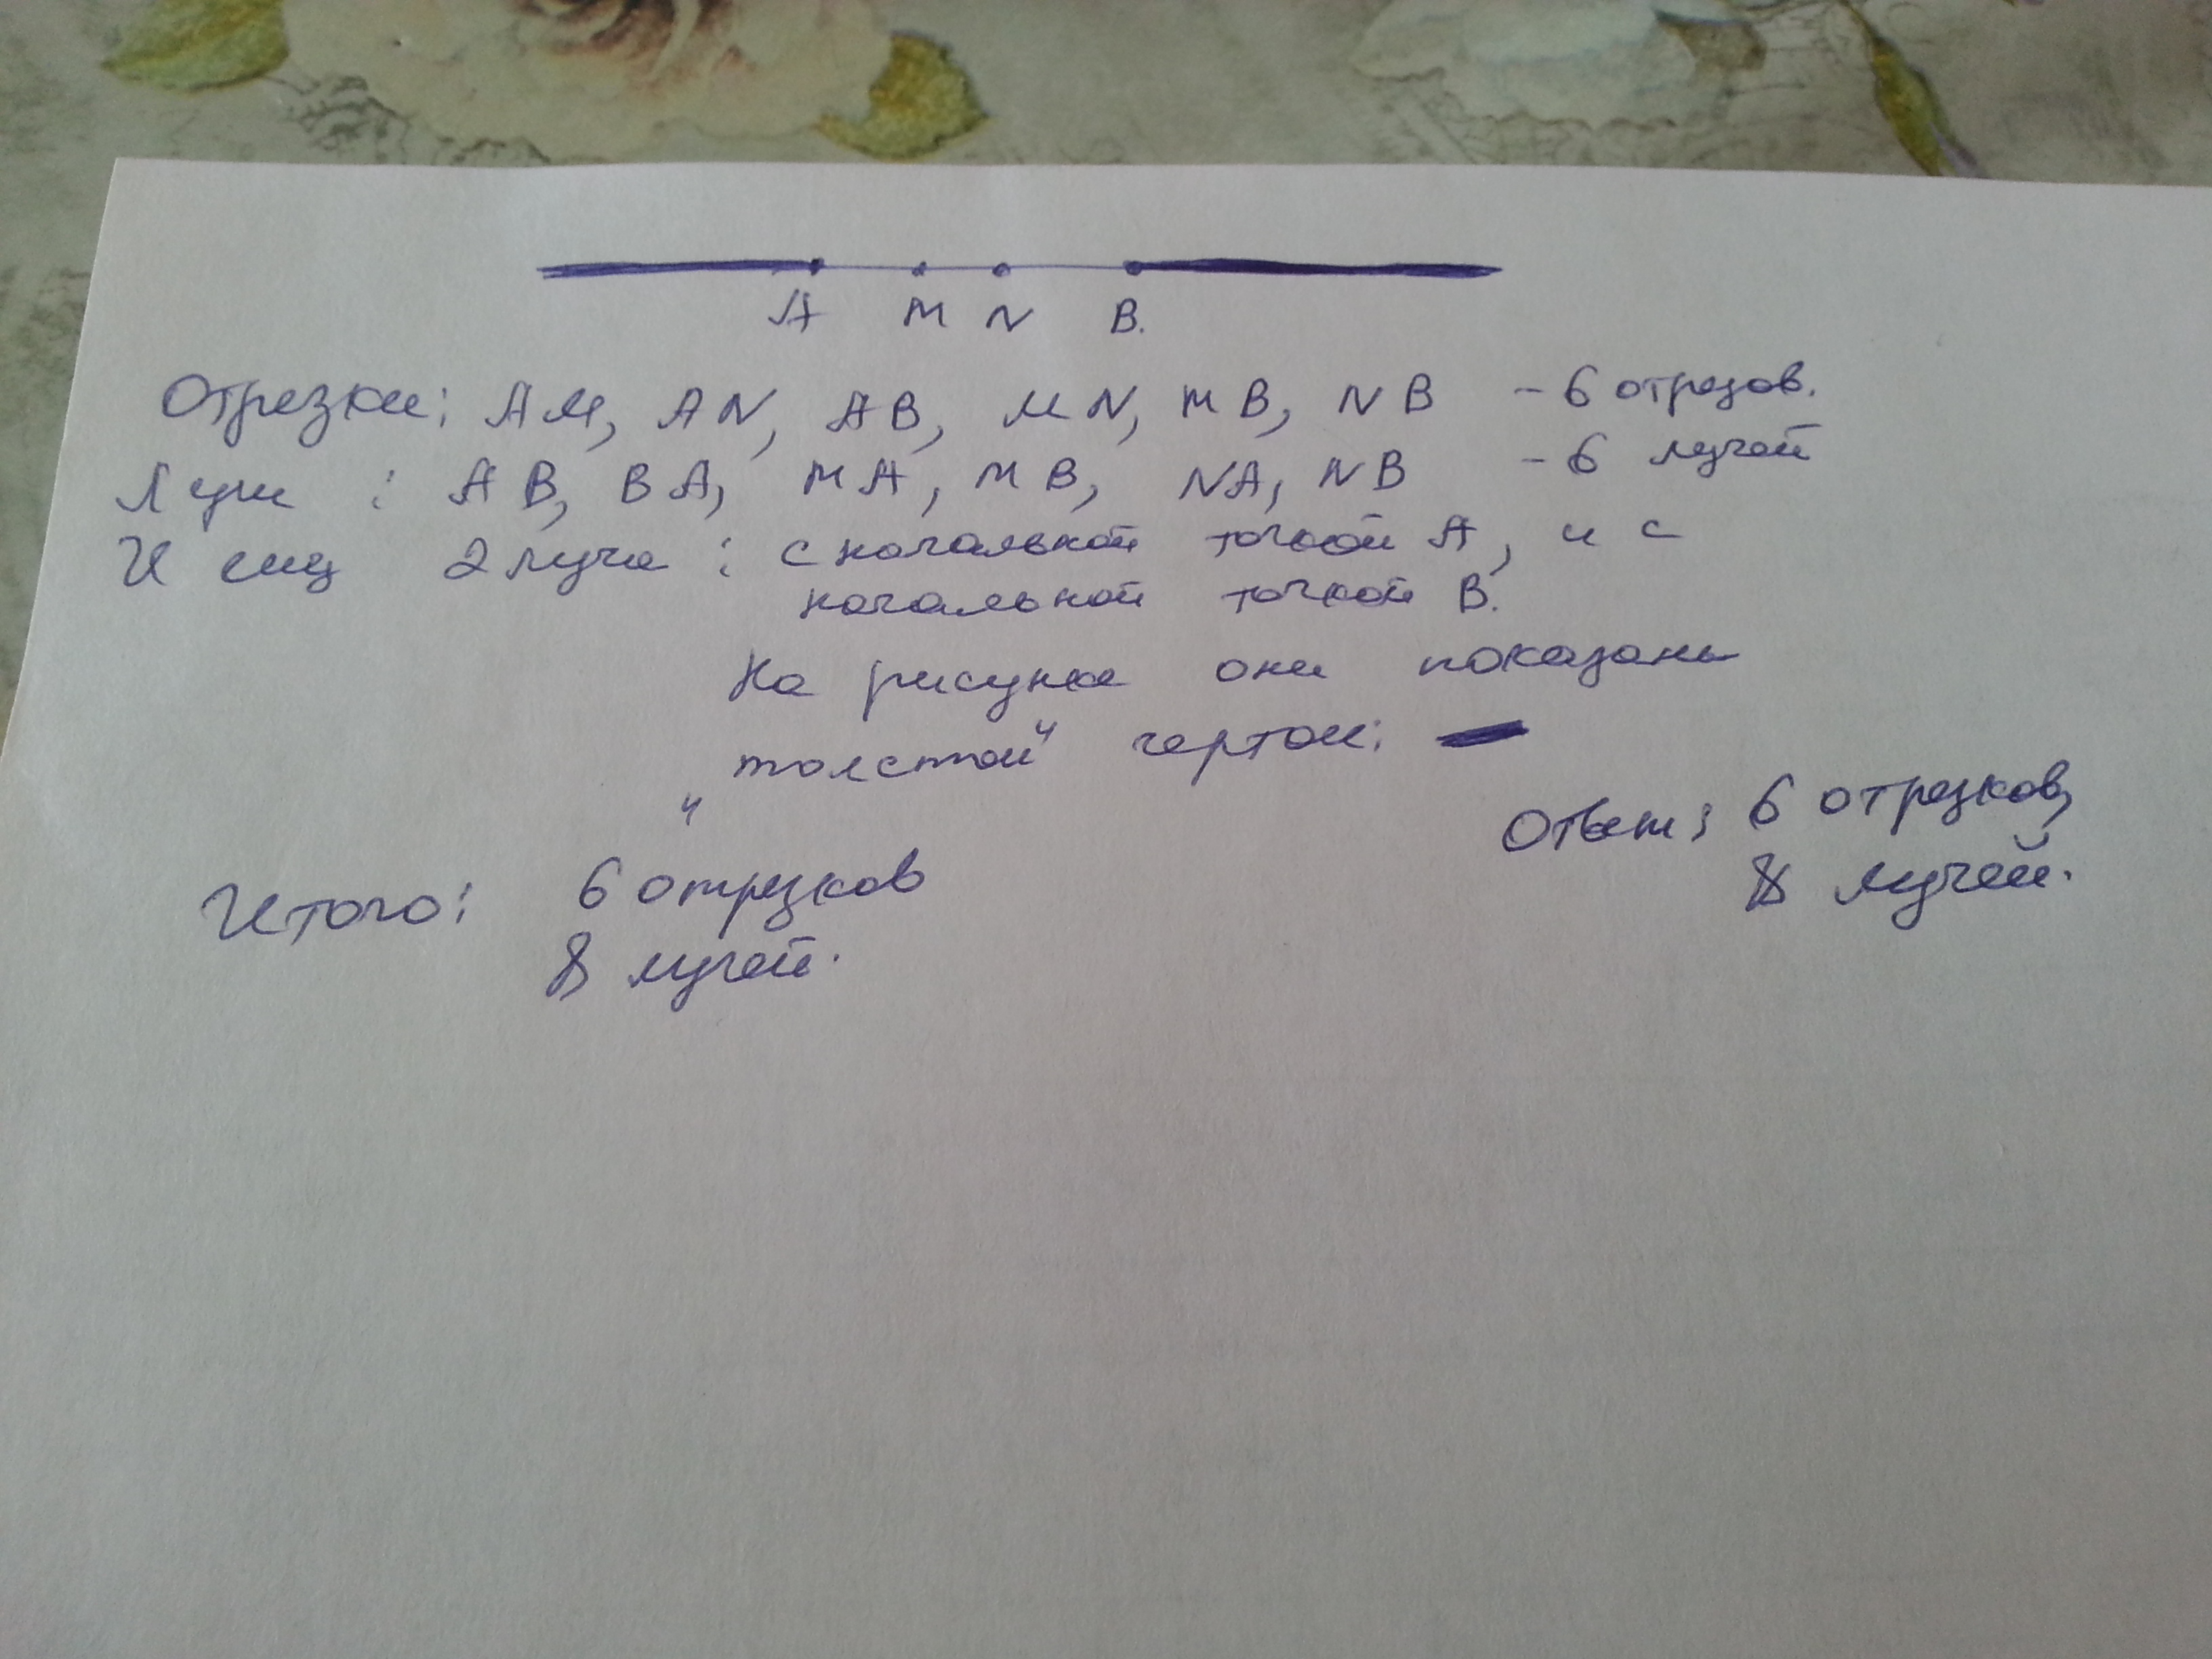 А М N В.
Отрезки: АМ, АN, АВ, МN, МВ, NВ - 6 отрезов.
Лучи : АВ, ВА, МА, МВ, NА, NВ - 6 лучей
И ещё 2 луча : с начальной точкой А, и с
начальной точкой В.
На рисунке они показаны
„толстой" чертой:
Ответ: 6 отрезков,
8 лучей.
Итого: 6 отрезков
8 лучей.